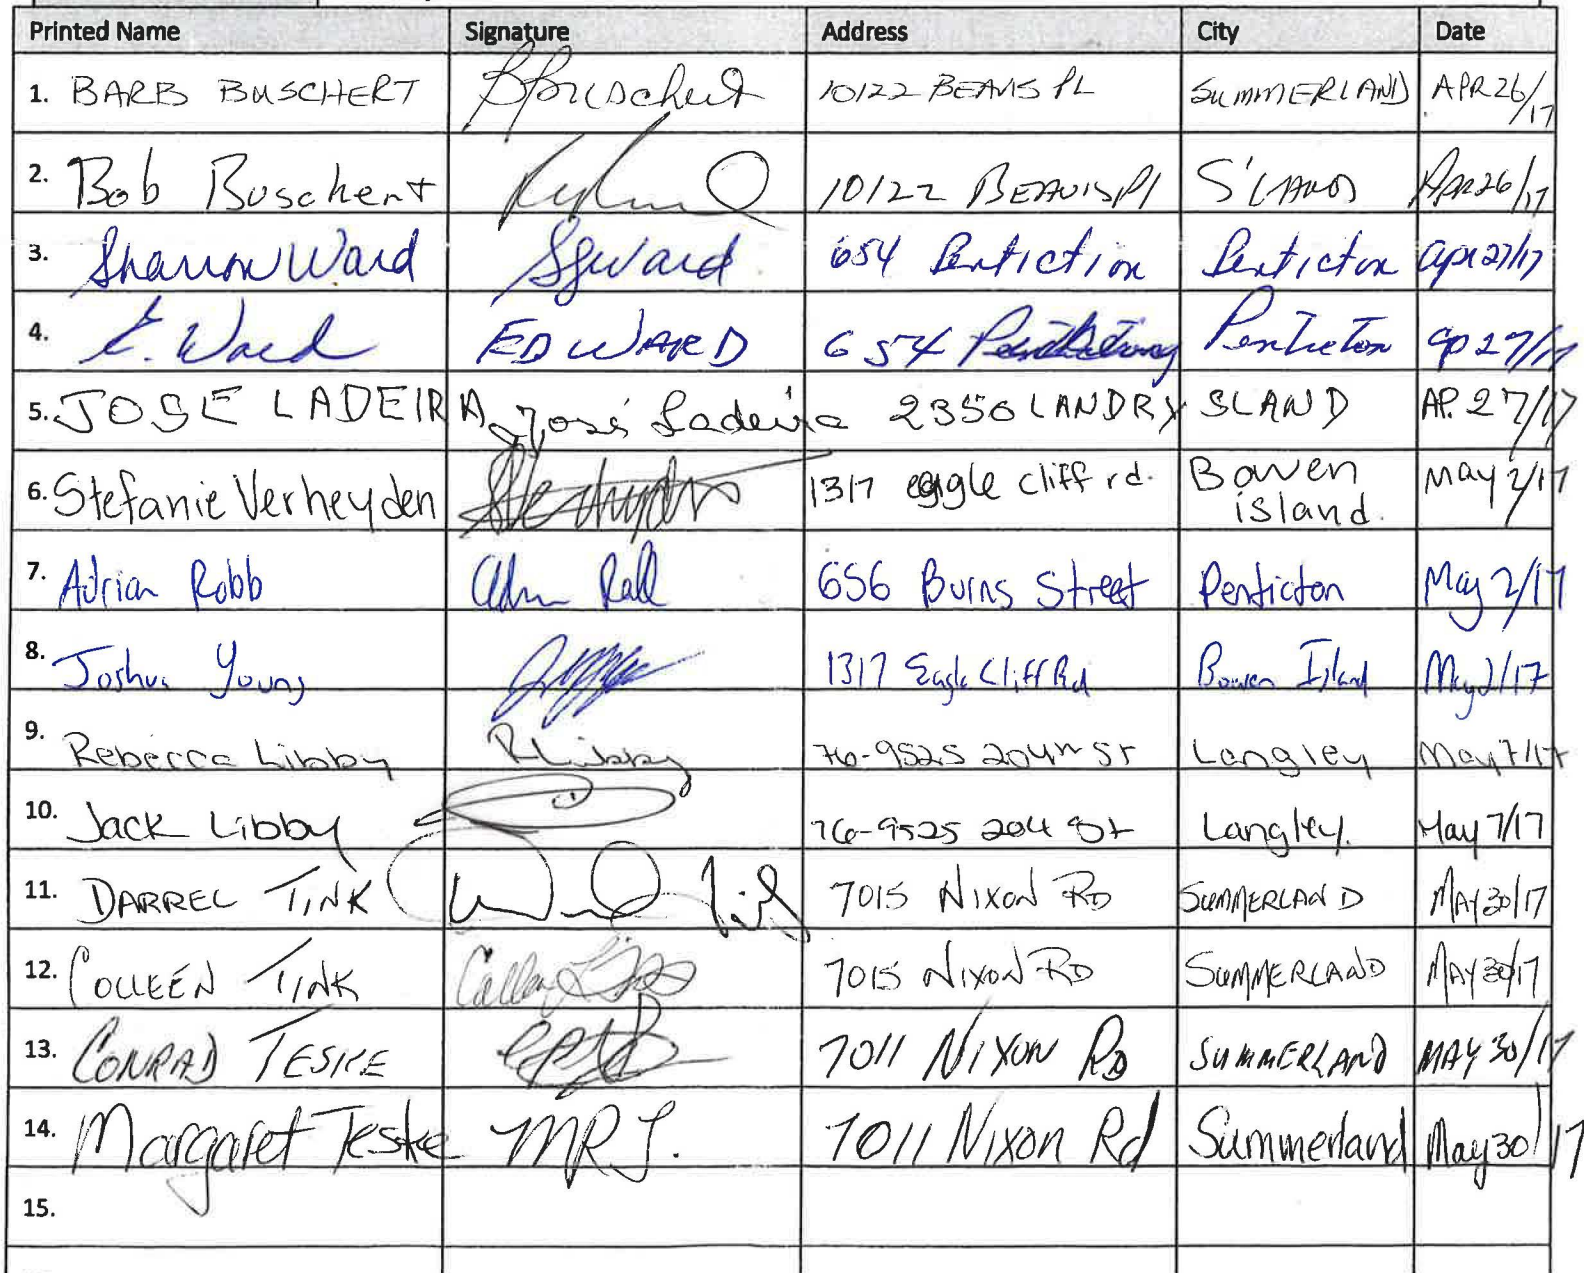 Printed Name Signature Address City Date
1. BARB BUSCHERT BBuschert 10122 BEAVIS PL SUMMERLAND APR 26/17
2. Bob Buschert 10122 BEAVIS Pl S'LAND APR 26/17
3. Sharron Ward SgWard 654 Pentiction Penticton apr 27/17
4. E. Ward ED WARD 654 Penticton ap 27/17
5. JOSE LADEIRA José Ladeira 2350 LANDRY SLAND AP. 27/17
6. Stefanie Verheyden 1317 eagle cliff rd. Bowen island. May 2/17
7. Adrian Robb 656 Burns Street Penticton May 2/17
8. Joshua Young 1317 Eagle Cliff Rd Bowen Island May 2/17
9. Rebecca Libby RLibby 76-9525 204th St Langley May 7/17
10. Jack Libby 76-9525 204 St Langley. May 7/17
11. DARREL TINK 7015 NIXON RD SUMMERLAND MAY 30/17
12. COLLEEN TINK 7015 NIXON RD SUMMERLAND MAY 30/17
13. CONRAD TESKE 7011 NIXON RD SUMMERLAND MAY 30/17
14. Margaret Teske MRT. 7011 Nixon Rd Summerland May 30/17
15.